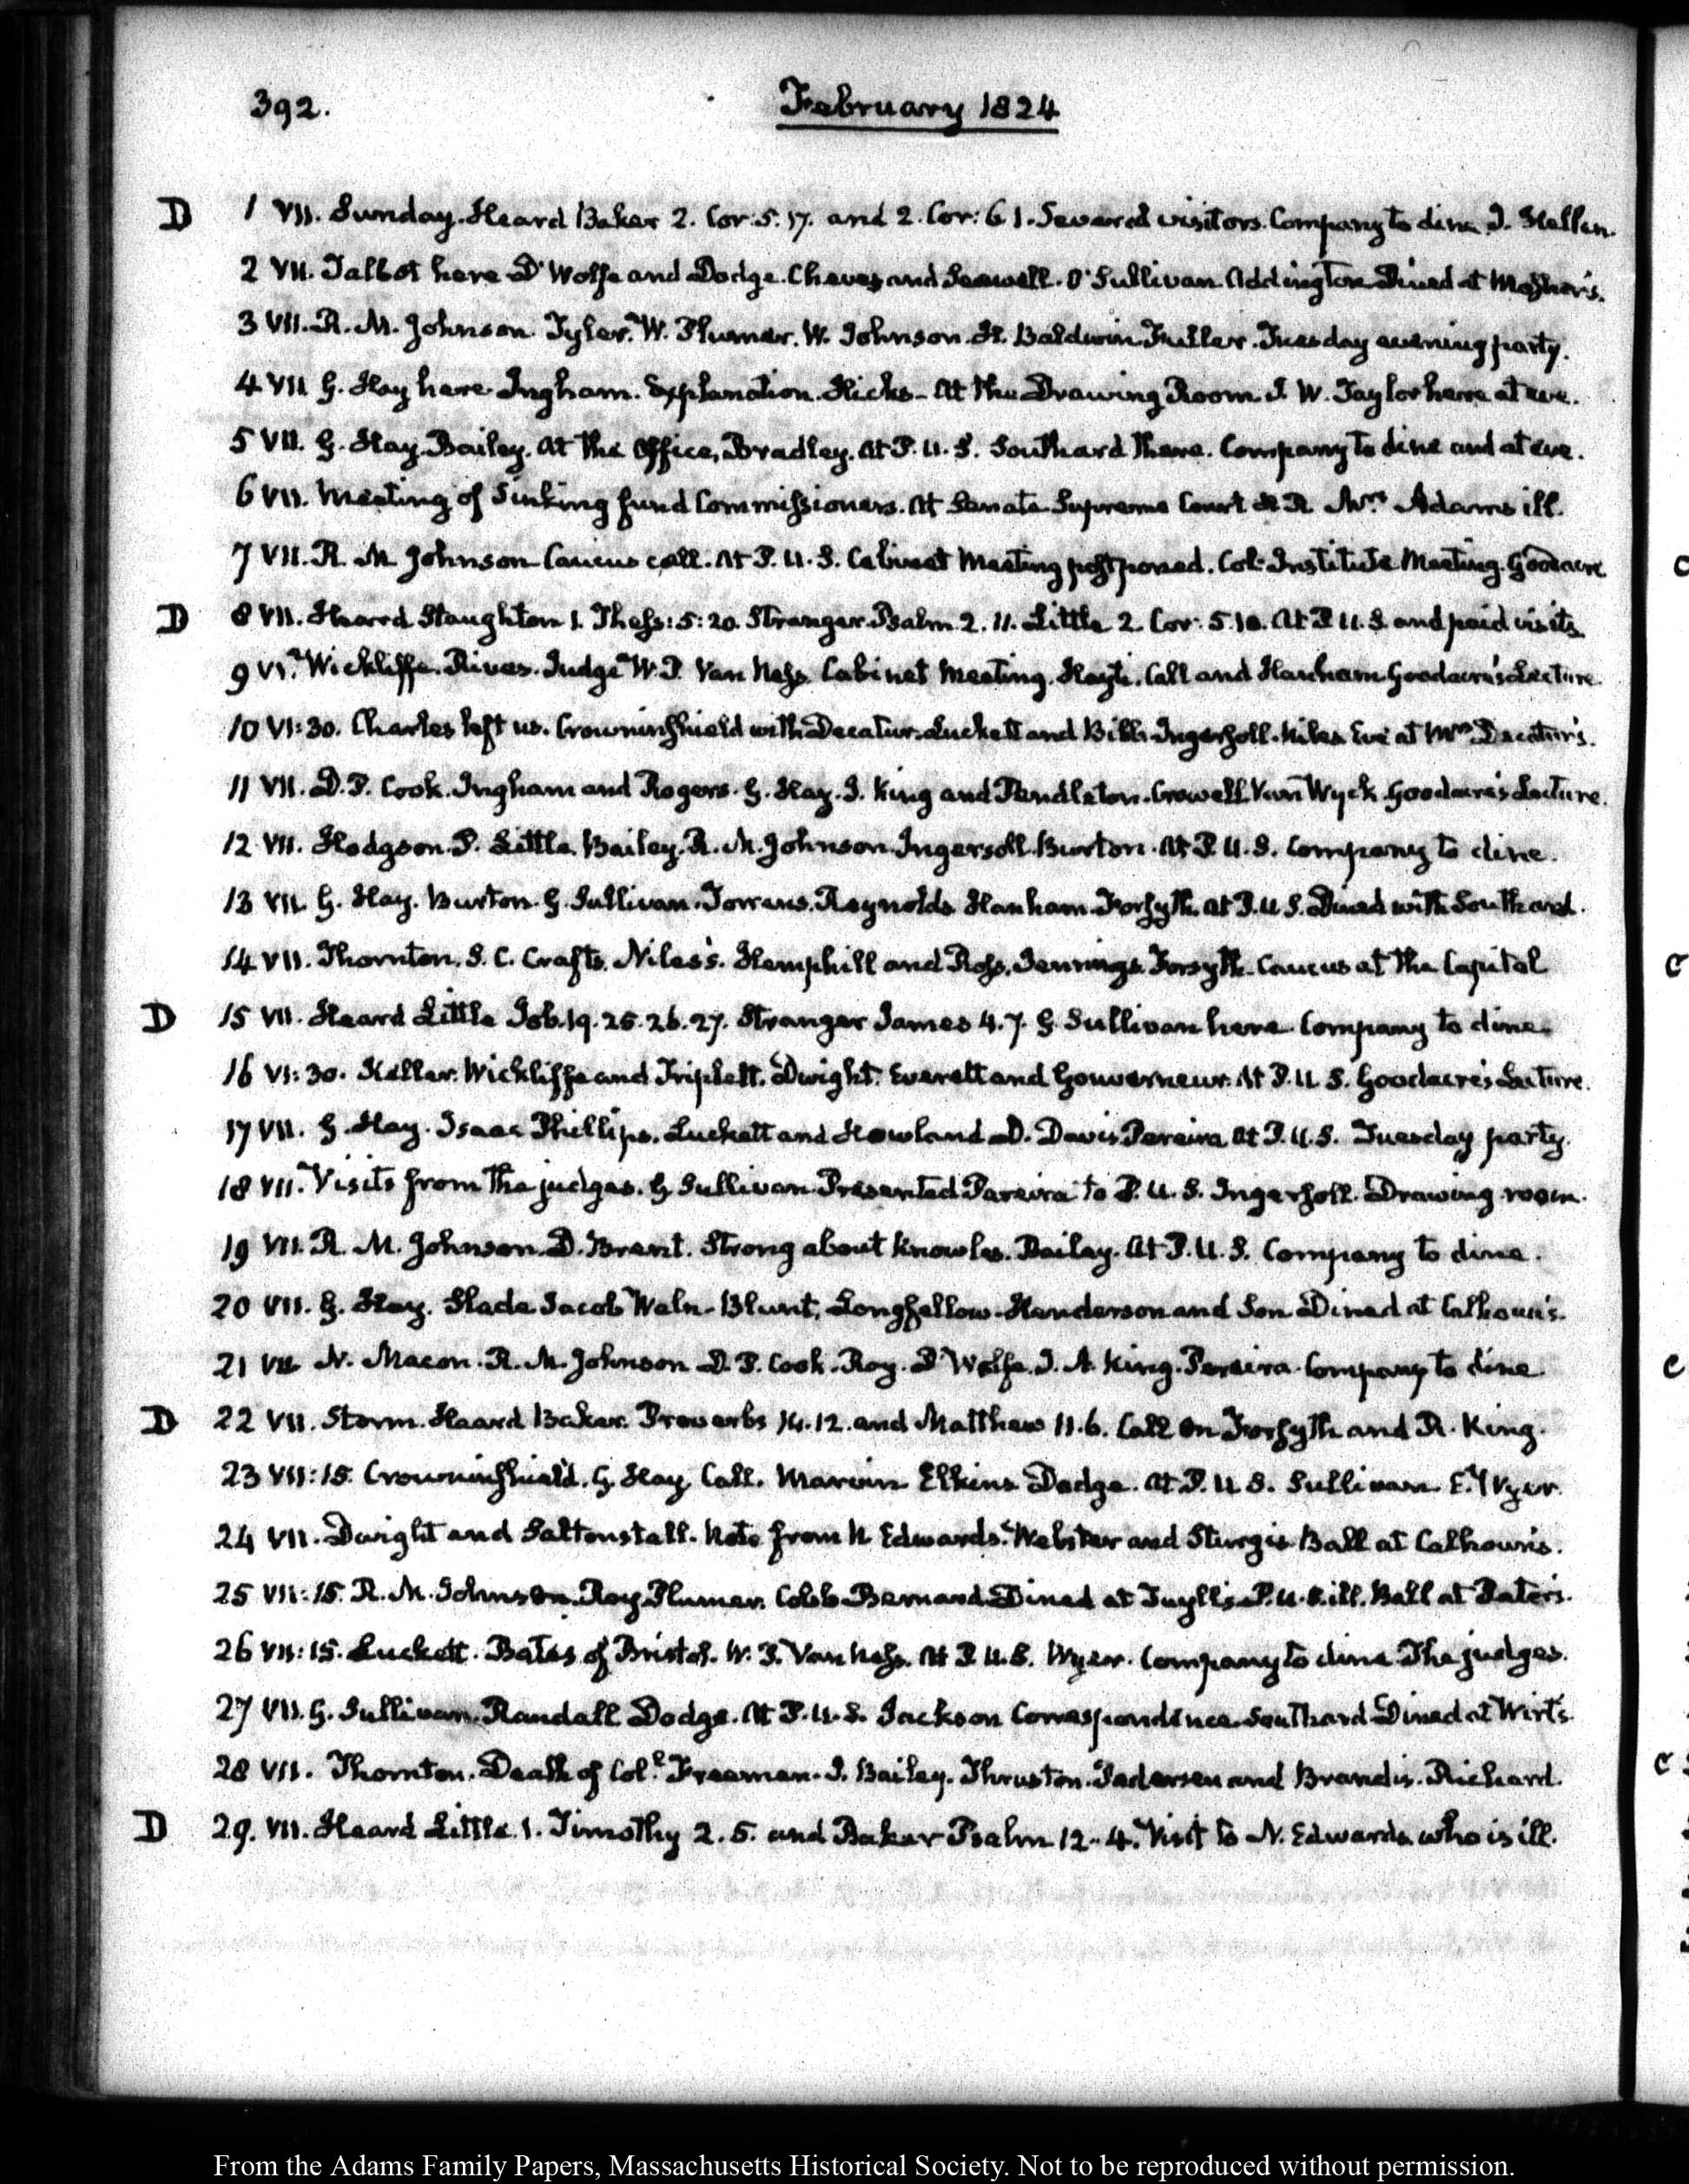 392.
February 1824
D 1 VII. Sunday. Heard Baker 2. Cor: 5. 17. and 2. Cor: 6 1. Several visitors. Company to dine J. Hellen.
2 VII. Talbot here D'Wolfe and Dodge. Cheves and Seawell. O'Sullivan Addington Dined at
3 VII. R. M. Johnson Tyler. W. Plumer. W. Johnson. H. Baldwin Fuller. Tuesday evening party.
4 VII G. Hay here Ingham. Explanation. Hicks — At the Drawing Room J. W. Taylor here at eve.
5 VII. G. Hay. Bailey. At the Office, Bradley. At P. U. S. Southard there. Company to dine and at eve.
6 VII. Meeting of Sinking fund Commissioners. At Senate Supreme Court H R Mrs. Adams ill.
7 VII. R. M Johnson Caucus call. At P. U. S. Cabinet Meeting postponed. Col: Institute Meeting. Goodacre
D 8 VII. Heard Staughton 1. Thess: 5: 20. Stranger Psalm 2. 11. Little 2. Cor: 5. 10. At P U. S. and paid visits
9 VI. Wickliffe. Rives. Judge W. P. Van Ness Cabinet Meeting. Hayti. Call and Hanham Goodacre's Lecture.
10 VI:30. Charles left us. Crowninshield with Decatur. Luckett and Bibb. Ingersoll. Niles Eve at Mrs Decatur's.
11 VII. D. P. Cook. Ingham and Rogers. G. Hay. J. King and Pendleton. Crowell Van Wyck Goodacre's Lecture.
12 VII. Hodgson. P. Little. Bailey. R. M. Johnson. Ingersoll. Burton. At P. U. S. Company to dine.
13 VII. G. Hay. Burton. G. Sullivan. Torrens. Reynolds Hanham. Forsyth. At P. U S. Dined with Southard.
14 VII. Thornton. S. C. Crafts. Niles's. Hemphill and Ross. Jennings. Forsyth. Caucus at the Capitol
D 15 VII. Heard Little Job. 19. 25. 26. 27. Stranger James 4. 7. G Sullivan here. Company to dine.
16 VI:30. Keller. Wickliffe and Triplett. Dwight. Everett and Gouverneur. At P. U S. Goodacre's Lecture.
17 VII. G. Hay. Isaac Phillips. Luckett and Howland D. Davis. Pereira At P. U. S. Tuesday party.
18 VII. Visits from the judges. G Sullivan. Presented Pereira to P. U. S. Ingersoll. Drawing room.
19 VII. R. M. Johnson. D. Brent. Strong about Knowles. Bailey. At P. U. S. Company to dine.
20 VII. G. Hay. Slade Jacob Waln. Blunt. Longfellow. Henderson and Son Dined at Calhoun's.
21 VII. N. Macon. R. M. Johnson D. P. Cook. Roy. D'Wolfe. J. A. King. Pereira. Company to dine
D 22 VII. Storm. Heard Baker. Proverbs 14. 12. and Matthew 11. 6. Call on Forsyth and R. King.
23 VII:15. Crowninshield. G. Hay. Call. Marvin Elkins Dodge. At P. U S. Sullivan E. Wyer
24 VII. Dwight and Saltonstall. Note from N Edwards. Webster and Sturgis Ball at Calhoun's.
25 VII:15. R. M. Johnson. Roy Plumer. Cobb Bernard. Dined at Tuyll's. P. U. S. ill. Ball at Pater's.
26 VII:15. Luckett. Bates of Bristol. W. P. Van Ness. At P. U. S. Wyer. Company to dine The judges.
27 VII. G. Sullivan. Randall Dodge. At P. U. S. Jackson Correspondence. Southard Dined at Wirt's
28 VII. Thornton. Death of Col.l Freeman. J. Bailey. Thruston. Pedersen and Brandis. Richard.
D 29. VII. Heard Little. 1. Timothy 2. 5. and Baker Psalm 12. 4. Visit to N. Edwards who is ill.
From the Adams Family Papers, Massachusetts Historical Society. Not to be reproduced without permission.